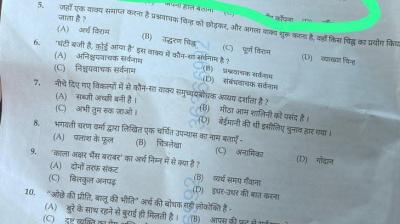 5. जहाँ एक वाक्य समाप्त करना है प्रश्नवाचक चिन्ह को छोड़कर, और अगला वाक्य शुरू करना है, वहाँ किस चिह्न का प्रयोग किया
जाता है ?
(A) अर्ध विराम (B) उद्धरण चिह्न (C) पूर्ण विराम (D) व्याख्या चिन्ह
6. 'घंटी बजी है, कोई आया है' इस वाक्य में कौन-सा सर्वनाम है ?
(A) अनिश्चयवाचक सर्वनाम (B) प्रश्नवाचक सर्वनाम
(C) निश्चयवाचक सर्वनाम (D) संबंधवाचक सर्वनाम
7. नीचे दिए गए विकल्पों में से कौन-सा वाक्य समुच्चयबोधक अव्यय दर्शाता है ?
(A) सब्जी अच्छी बनी है। (B) मीठा आम शालिनी को पसंद है।
(C) अभी तुम रुक जाओ। (D) बेईमानी की थी इसीलिए चुनाव हार गया।
8. भगवती चरण वर्मा द्वारा लिखित एक चर्चित उपन्यास का नाम बताएँ -
(A) पलाश के फूल (B) चित्रलेखा (C) अनामिका (D) गोदान
9. 'काला अक्षर भैंस बराबर' का अर्थ निम्न में से क्या है ?
(A) दोनों तरफ संकट (B) व्यर्थ समय गँवाना
(C) बिलकुल अनपढ़ (D) इधर-उधर की बात करना
10. "ओछे की प्रीति, बालू की भीति" अर्थ की बोधक सही लोकोक्ति है -
(A) बुरे के साथ रहने से बुराई ही मिलती है। (B) आपस की फूट से
(C) दुष्ट व्यक्ति का